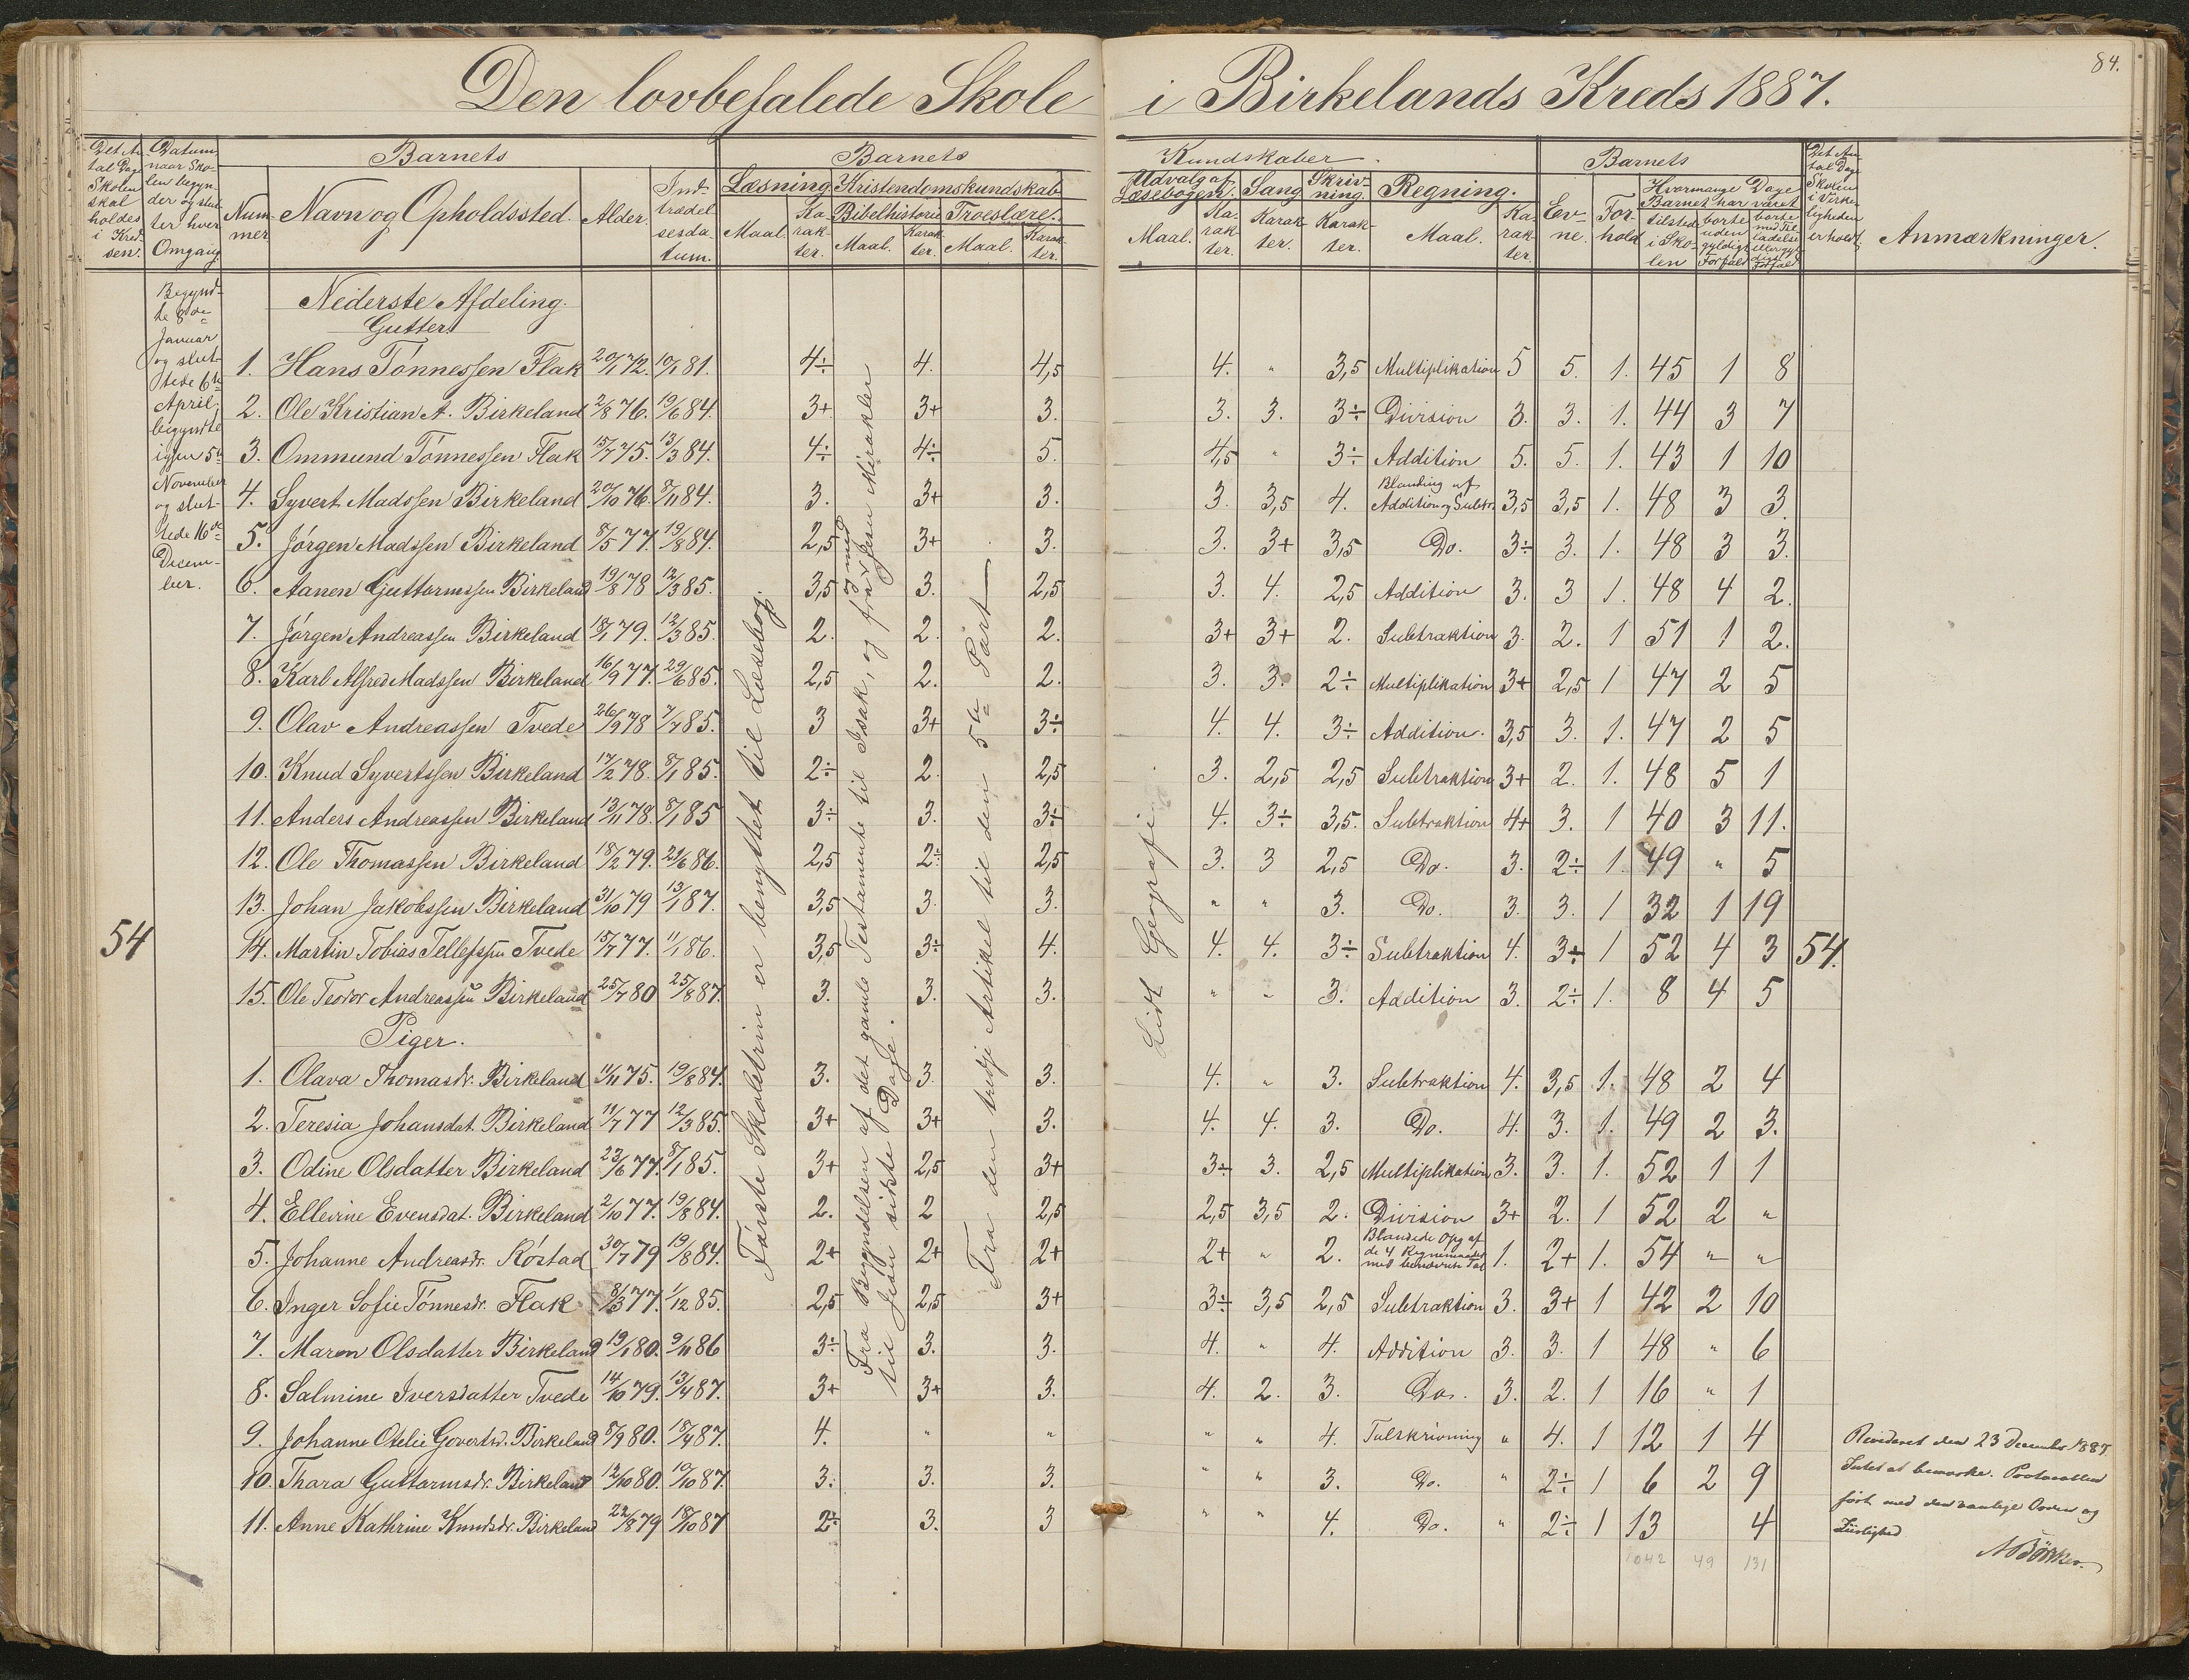 84.
Den lovbefalede Skole i Birkelands Kreds 1887.
Det An-
tal Dage
Skolen
skal
holdes
i Kred-
sen.
Datum
naar Sko-
len begyn-
der og slut-
ter hver
Omgang
Barnets
Num-
mer
Navn og Opholdssted.
Alder.
Ind-
trædel-
sesda-
tum.
Barnets
Læsning
Maal.
Ka-
rak-
ter.
Kristendomskundskab
Bibelhistorie
Maal.
Karak-
ter.
Troeslære.
Maal.
Karak-
ter.
Kundskaber.
Udvalg af
Læsebogen.
Maal.
Ka-
rak-
ter.
Sang
Karak-
ter.
Skriv-
ning.
Karak-
ter.
Regning.
Maal.
Ka-
rak-
ter.
Barnets
Ev-
ne.
For-
hold
Hvormange Dage
Barnet har været
tilstede
i Sko-
len
borte
uden
gyldigt
Forfald
borte
med Til-
ladelse
eller gyl-
digt
Forfald
Det An-
tal Dage
Skolen
i Virke-
ligheden
er holdt
Anmærkninger.
Begynd-
te 8de
Januar
og slut-
tede 6te
April;
begyndte
igjen 5te
November
og slut-
tede 16de
Decem-
ber.
54
Nederste Afdeling.
Gutter.
1. Hans Tönnessen Flak 20/1 72. 10/1 81. 4÷ 4. 4,5 4. " 3,5 Multiplikation 5 5. 1. 45 1 8
2. Ole Kristian A. Birkeland 2/8 76. 19/6 84. 3+ 3+ 3. 3. 3. 3÷ Division 3. 3. 1. 44 3 7
3. Ommund Tönnessen Flak 15/7 75. 13/3 84. 4÷ 4÷ 5. 4,5 " 3÷ Addition 5. 5. 1. 43 1 10
4. Syvert Madssen Birkeland 20/10 76. 8/11 84. 3. 3+ 3. 3. 3,5 4. Blanding af Addition og Subtr. 3,5 3,5 1. 48 3 3
5. Jörgen Madssen Birkeland 8/5 77. 19/8 84. 2,5 3+ 3. 3. 3+ 3,5 Do. 3÷ 3. 1. 48 3 3.
6. Aanen Guttormssen Birkeland 19/8 78 12/3 85. 3,5 3. 2,5 3. 4. 2,5 Addition 3. 3 1. 48 4 2.
7. Jörgen Andreassen Birkeland 18/1 79. 12/3 85. 2. 2. 2. 3+ 3+ 2. Subtraktion 3. 2. 1 51 1 2.
8. Karl Alfred Madssen Birkeland 16/9 77. 29/6 85. 2,5 2. 2. 3. 3. 2÷ Multiplikation 3+ 2,5 1 47 2 5
9. Olav Andreassen Tvede 26/9 78 7/7 85. 3 3+ 3÷ 4. 4. 3÷ Addition. 3,5 3. 1. 47 2 5
10. Knud Syvertssen Birkeland 17/2 78. 8/1 85. 2÷ 2. 2,5 3. 2,5 2,5 Subtraktion 3+ 2. 1. 48 5 1
11. Anders Andreassen Birkeland 13/11 78. 8/1 85 3÷ 3. 3÷ 4. 3÷ 3,5. Subtraktion 4+ 3. 1 40 3 11.
12. Ole Thomassen Birkeland 18/2 79. 21/6 86. 2,5 2÷ 2,5 3. 3 2,5 Do. 3. 2÷ 1. 49 " 5
13. Johan Jakobssen Birkeland 31/10 79 13/1 87. 3,5 3. 3. " " 3. Do. 3. 3. 1 32 1 19
14. Martin Tobias Tellefssen Tvede 15/7 77. 11/1 86. 3,5 3÷ 4. 4. 4. 3÷ Subtraktion 4. 3÷ 1 52 4 3 54.
15. Ole Teodor Andreassen Birkeland 25/7 80 25/8 87. 3. 3. 3. " " 3. Addition 3. 2÷ 1. 8 4 5
Piger.
1. Olava Thomasdr. Birkeland 11/11 75. 19/8 84. 3. 3. 3. 4. " 3. Subtraktion 4. 3,5 1. 48 2 4
2. Teresia Johansdat. Birkeland 11/7 77 12/3 85. 3+ 3+ 3. 4. 4. 3. Do. 4. 3. 1. 49 2 3.
3. Odine Olsdatter Birkeland 23/6 77. 8/1 85. 3+ 2,5 3+ 3÷ 3. 2,5 Multiplikation 3. 3. 1. 52 1 1
4. Ellevine Evensdat. Birkeland 2/10 77. 19/8 84. 2. 2 2,5 2,5 3,5 2. Division 3+ 2. 1 52 2 "
5. Johanne Andreasdr. Röstad 30/7 79 19/8 84. 2+ 2+ 2+ 2+ " 2. Blandede Opg af de 4 Regnemaader med benævnte Tal 1. 2+ 1. 54 " "
6. Inger Sofie Tönnesdr. Flak 8/3 77. 1/12 85. 2,5 2,5 3+ 3÷ 3,5 2,5 Subtraktion 3. 3+ 1 42 2 10
7. Maren Olsdatter Birkeland 19/1 80. 9/11 86 3÷ 3. 3. 4. " 4. Addition 3. 3. 1 48 " 6
8. Salmine Iversdatter Tvede 14/10 79. 13/4 87. 3+ 3+ 3. 4. 2. 3. Do. 3. 2. 1 16 " 1
9. Johanne Otelie Govertsd. Birkeland 8/9 80. 18/4 87. 4. " " " " 4. Talskrivning " 4. 1 12 1 4
10. Thara Guttormsdr. Birkeland 12/10 80. 10/10 87. 3. 3. 3. " " 3. Do. " 2÷ 1 6 2 9
11. Anne Kathrine Knudsdr. Birkeland 22/8 79 18/10 87 2÷ 3. 3 " " 4. Do. " 2÷ 1 13 4
1042 49 131
Förste Skoletrin er benyttet til Læsebog.
Fra Begyndelsen af det gamle Testamente til Isak, og fra Jesu Mirakler
til Jesu sidste Dage.
Fra den tredje Artikel til den 5te Part
Lidt Geografi.
Revideret den 23 December 1887.
Intet at bemærke. Protocollen
fört med den vanlige Orden og
Ziirlighed